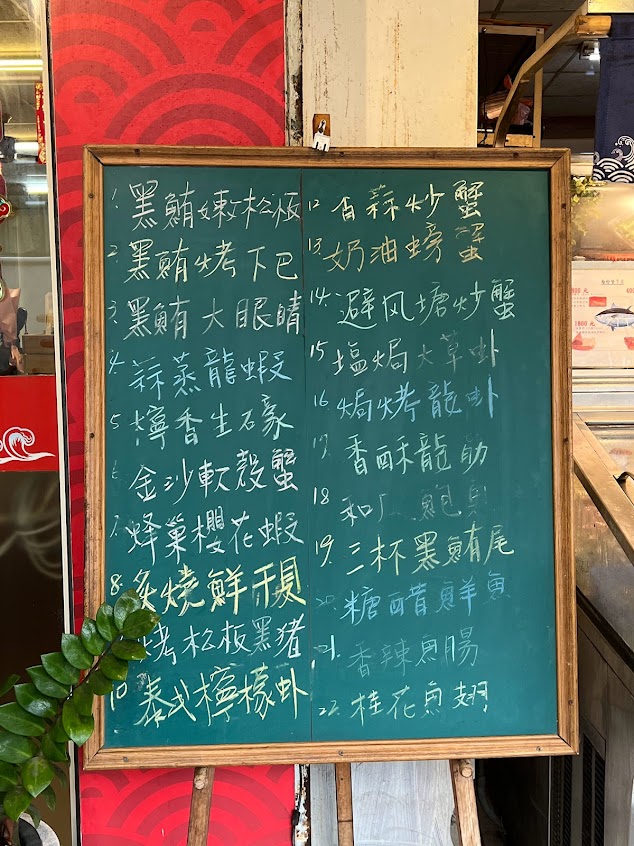 1. 黑鮪嫩松板
2 黑鮪烤下巴
3. 黑鮪大眼睛
4. 蒜蒸龍蝦
5 檸香生石豪
6 金沙軟殼蟹
7. 蜂巢櫻花蝦
8. 炙燒鮮干貝
烤松板黑豬
10 泰式檸檬虾
12 香蒜炒蟹
13. 奶油螃蟹
14. 避风塘炒蟹
15 塩焗大草虾
16 焗烤龍虾
17. 香酥龍
18 和
19. 三杯黑鮪尾
20. 糖醋鮮魚
21. 香辣魚腸
22. 桂花魚翅